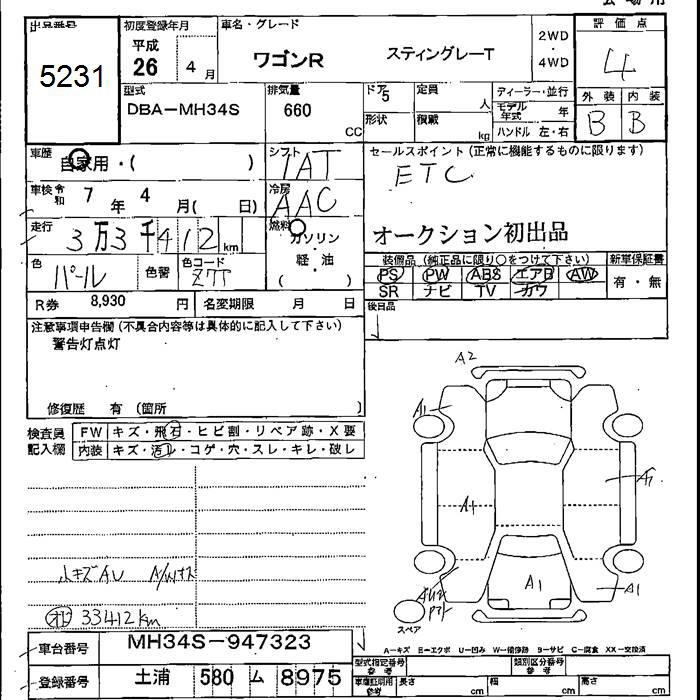 出品番号 初度登録年月 車名・グレード 評価点
5231 平成 26 4月 ワゴンR スティングレーT 2WD・4WD 4
型式 DBA-MH34S 排気量 660 CC
ドア 5 定員 人 ディーラー・並行
形状 積載 kg モデル年式 年 ハンドル 左・右
外装 内装
B B
車歴 自家用・( ) シフト IAT
セールスポイント(正常に機能するものに限ります)
ETC
車検 令和 7年 4月( 日) 冷房 AAC
走行 3万3千412km 燃料 ガソリン・軽・油 ( )
オークション初出品
色 パール 色替 色コード Z7T
装備品(純正品に限り○をつけて下さい) 新車保証書
PS PW ABS エアB AW 有・無
SR ナビ TV カワ
R券 8,930円 名変期限 月 日
後日品
注意事項申告欄(不具合内容等は具体的に記入して下さい)
警告灯点灯
修復歴 有(箇所 )
検査員記入欄 FW キズ・飛石・ヒビ割・リペア跡・X要
内装 キズ・汚レ・コゲ・穴・スレ・キレ・破レ
A2
A1
A1
A1
A1
A1
小キズAU A/Wキズ
33412km
スペア
A-キズ E-エクボ U-凹み W-補修跡 B-サビ C-腐食 XX-交換済
車台番号 MH34S-947323
型式指定番号 参考 類別区分番号 参考
登録番号 土浦 580 ム 8975
車庫証明用 参考 長さ cm 幅 cm 高さ cm